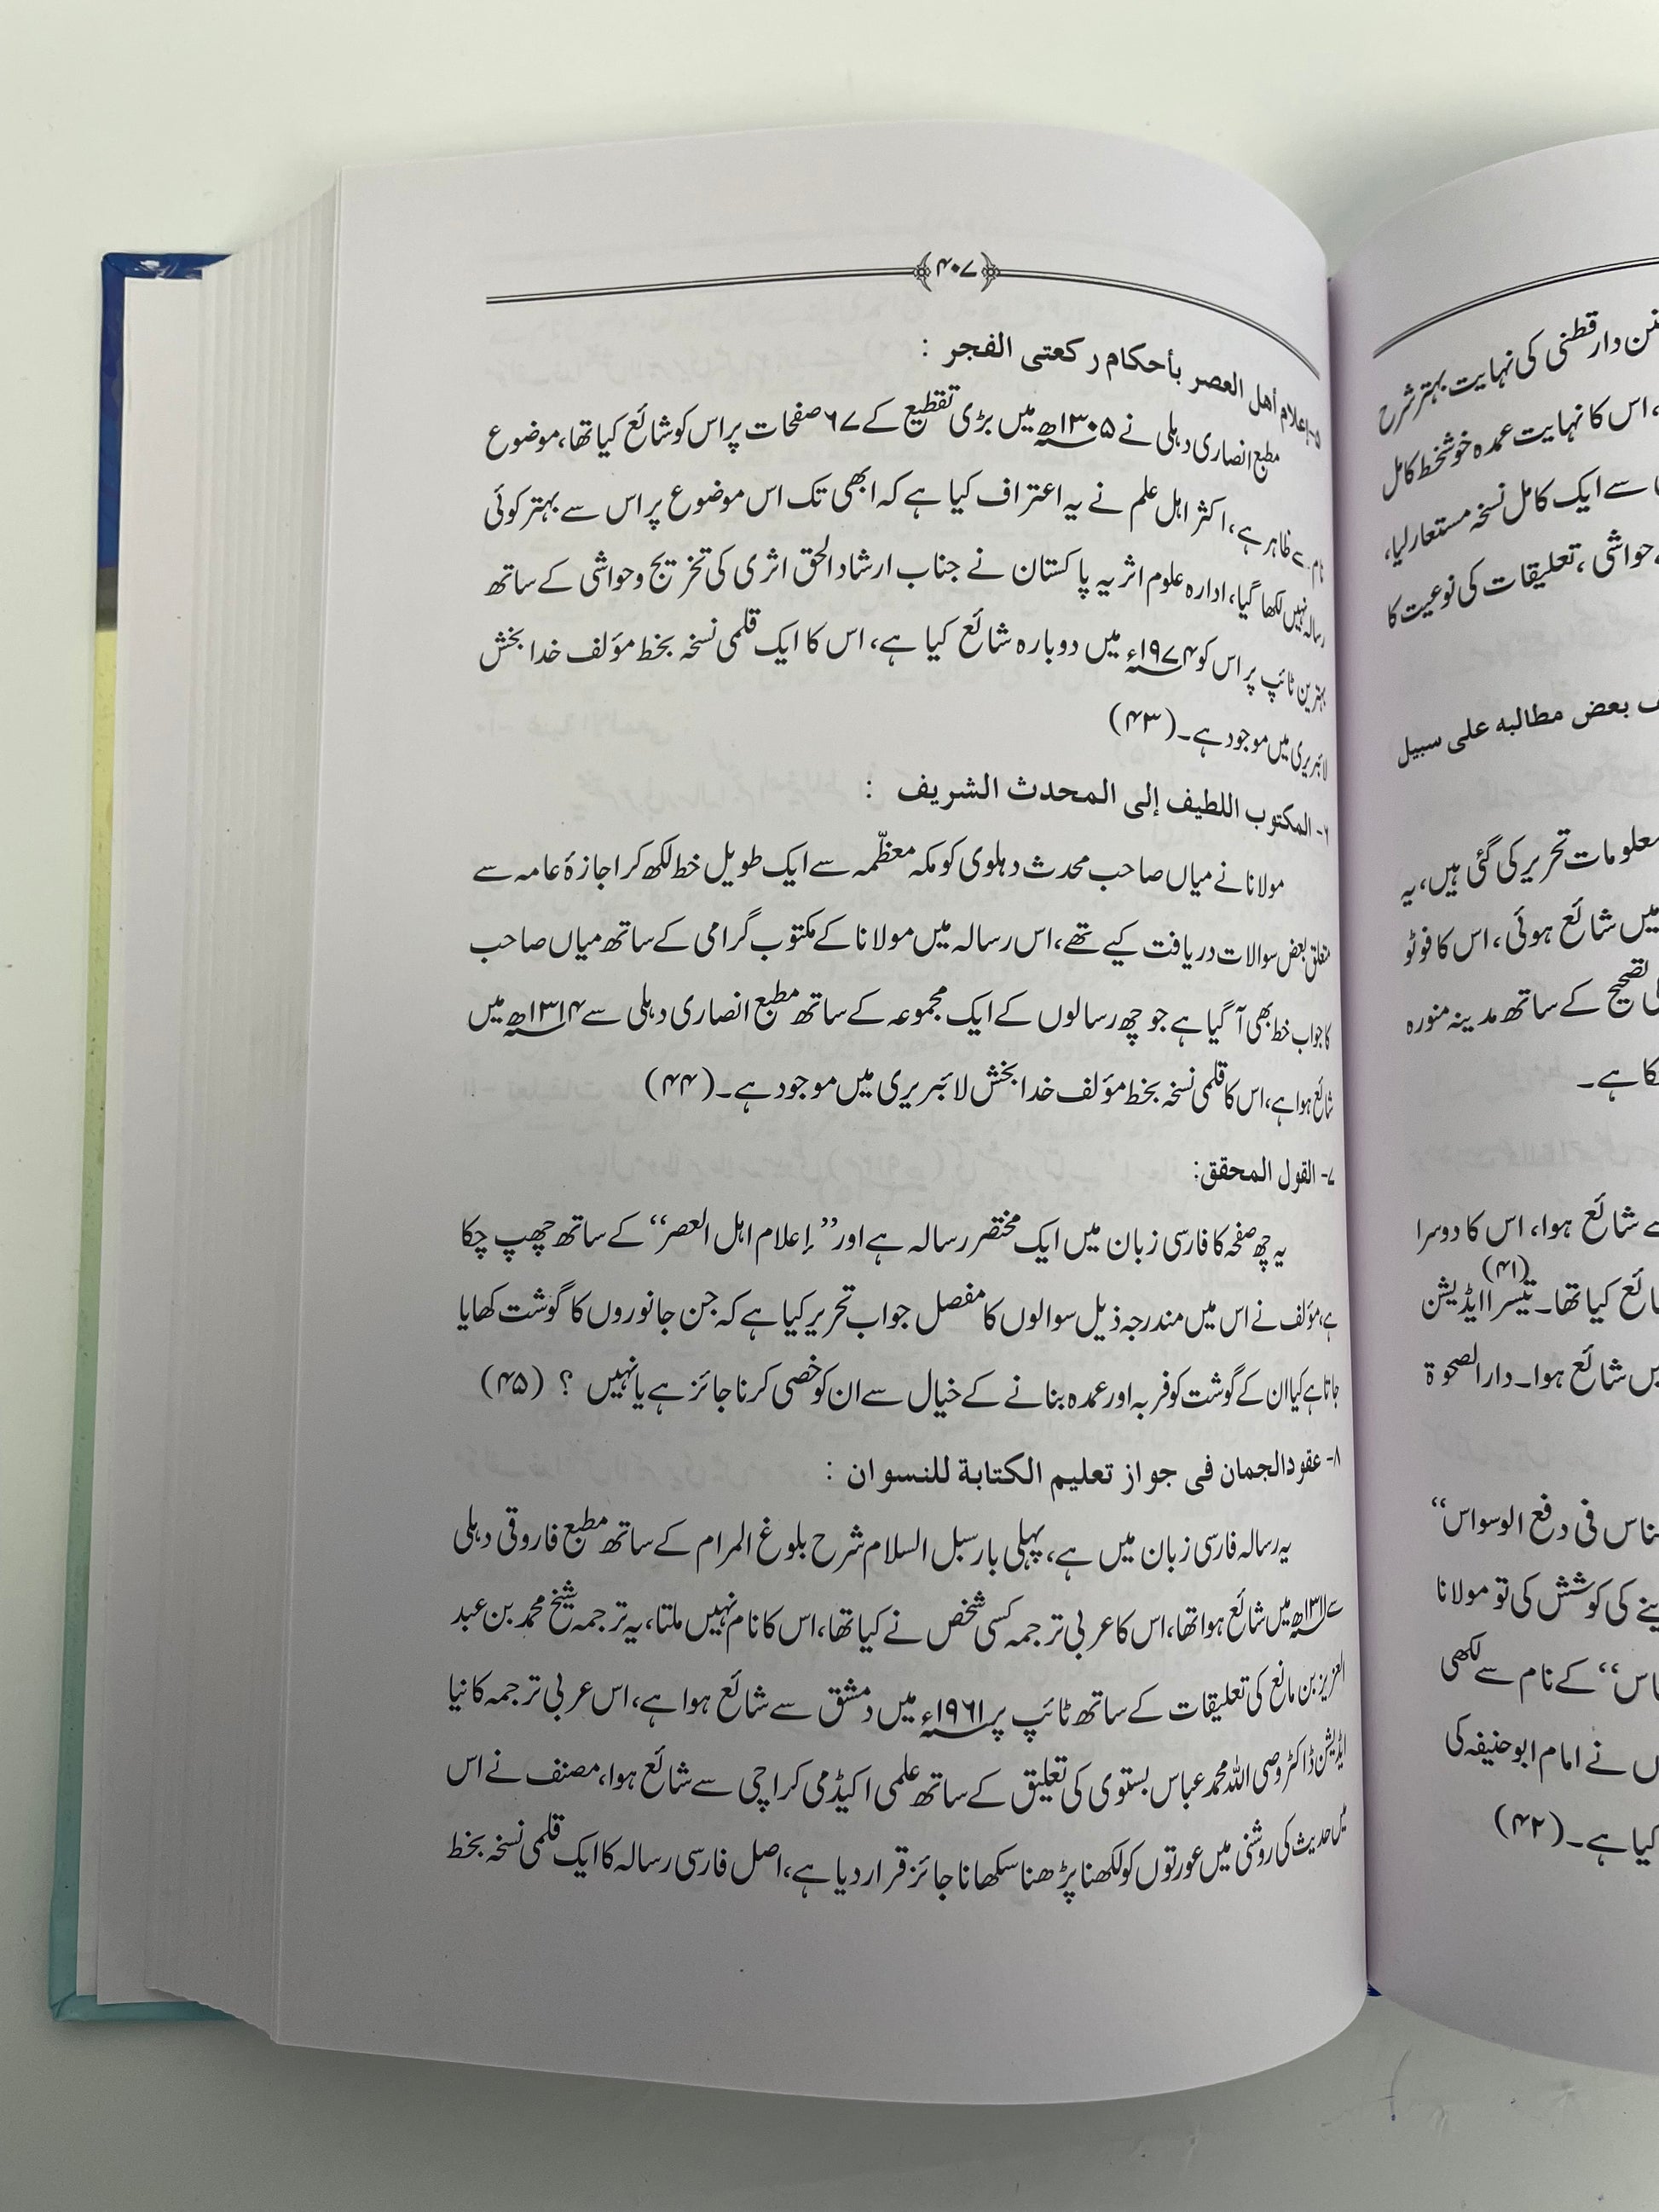 ۷۰۴
۵- إعلام أهل العصر بأحكام ركعتى الفجر :
مطبع انصاری دہلی نے ۱۳۰۵ھ میں بڑی تقطیع کے ۶۷ صفحات پر اس کو شائع کیا تھا، موضوع
نام سے ظاہر ہے، اکثر اہل علم نے یہ اعتراف کیا ہے کہ ابھی تک اس موضوع پر اس سے بہتر کوئی
رسالہ نہیں لکھا گیا، ادارہ علوم اثریہ پاکستان نے جناب ارشاد الحق اثری کی تخریج وحواشی کے ساتھ
بہترین ٹائپ پر اس کو ۱۹۷۴ء میں دوبارہ شائع کیا ہے، اس کا ایک قلمی نسخہ بخط مؤلف خدا بخش
لائبریری میں موجود ہے۔ (۴۳)
۶- المكتوب اللطيف إلى المحدث الشريف :
مولانا نے میاں صاحب محدث دہلوی کو مکہ معظّمہ سے ایک طویل خط لکھ کر اجازۂ عامہ سے
متعلق بعض سوالات دریافت کیے تھے، اس رسالہ میں مولانا کے مکتوب گرامی کے ساتھ میاں صاحب
کا جواب خط بھی آ گیا ہے جو چھ رسالوں کے ایک مجموعہ کے ساتھ مطبع انصاری دہلی سے ۱۳۱۴ھ میں
شائع ہوا ہے، اس کا قلمی نسخہ بخط مؤلف خدا بخش لائبریری میں موجود ہے۔ (۴۴)
۷- القول المحقق:
یہ چھ صفحہ کا فارسی زبان میں ایک مختصر رسالہ ہے اور ”إعلام اہل العصر“ کے ساتھ چھپ چکا
ہے، مؤلف نے اس میں مندرجہ ذیل سوالوں کا مفصل جواب تحریر کیا ہے کہ جن جانوروں کا گوشت کھایا
جاتا ہے کیا ان کے گوشت کو فربہ اور عمدہ بنانے کے خیال سے ان کو خصی کرنا جائز ہے یا نہیں ؟ (۴۵)
۸- عقود الجمان فى جواز تعليم الكتابة للنسوان :
یہ رسالہ فارسی زبان میں ہے، پہلی بار سبل السلام شرح بلوغ المرام کے ساتھ مطبع فاروقی دہلی
سے ۱۳۱۱ھ میں شائع ہوا تھا، اس کا عربی ترجمہ کسی شخص نے کیا تھا، اس کا نام نہیں ملتا، یہ ترجمہ شیخ محمد بن عبد
العزیز بن مانع کی تعلیقات کے ساتھ ٹائپ پر ۱۹۶۱ء میں دمشق سے شائع ہوا ہے، اس عربی ترجمہ کا نیا
ایڈیشن ڈاکٹر وصی اللہ محمد عباس بستوی کی تعلیق کے ساتھ علمی اکیڈمی کراچی سے شائع ہوا، مصنف نے اس
میں حدیث کی روشنی میں عورتوں کو لکھنا پڑھنا سکھانا جائز قرار دیا ہے، اصل فارسی رسالہ کا ایک قلمی نسخہ بخط
دار قطنی کی نہایت بہتر شرح
اس کا نہایت عمدہ خوشخط کامل
سے ایک کامل نسخہ مستعار لیا،
حواشی، تعلیقات کی نوعیت کا
بعض مطالبه على سبيل
معلومات تحریر کی گئی ہیں، یہ
میں شائع ہوئی، اس کا فوٹو
تصحیح کے ساتھ مدینہ منورہ
ہے۔
شائع ہوا، اس کا دوسرا
کیا تھا۔ (۴۱) تیسرا ایڈیشن
شائع ہوا۔ دار الصحوۃ
فی دفع الوسواس“
کی کوشش کی تو مولانا
کے نام سے لکھی
نے امام ابو حنیفہ کی
کیا ہے۔ (۴۲)